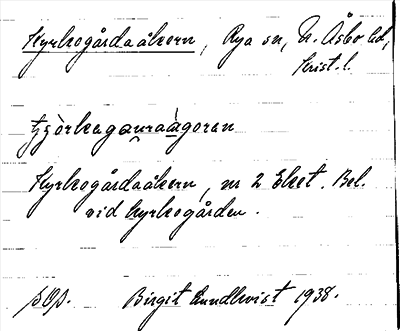 Kyrkogårdaåkern, Rya sn, N. Åsbo hd,
Krist. l.
Kyrkogårdaåkern, nr 2 Eket. Bel.
vid kyrkogården.
Birgit Lundkvist 1938.